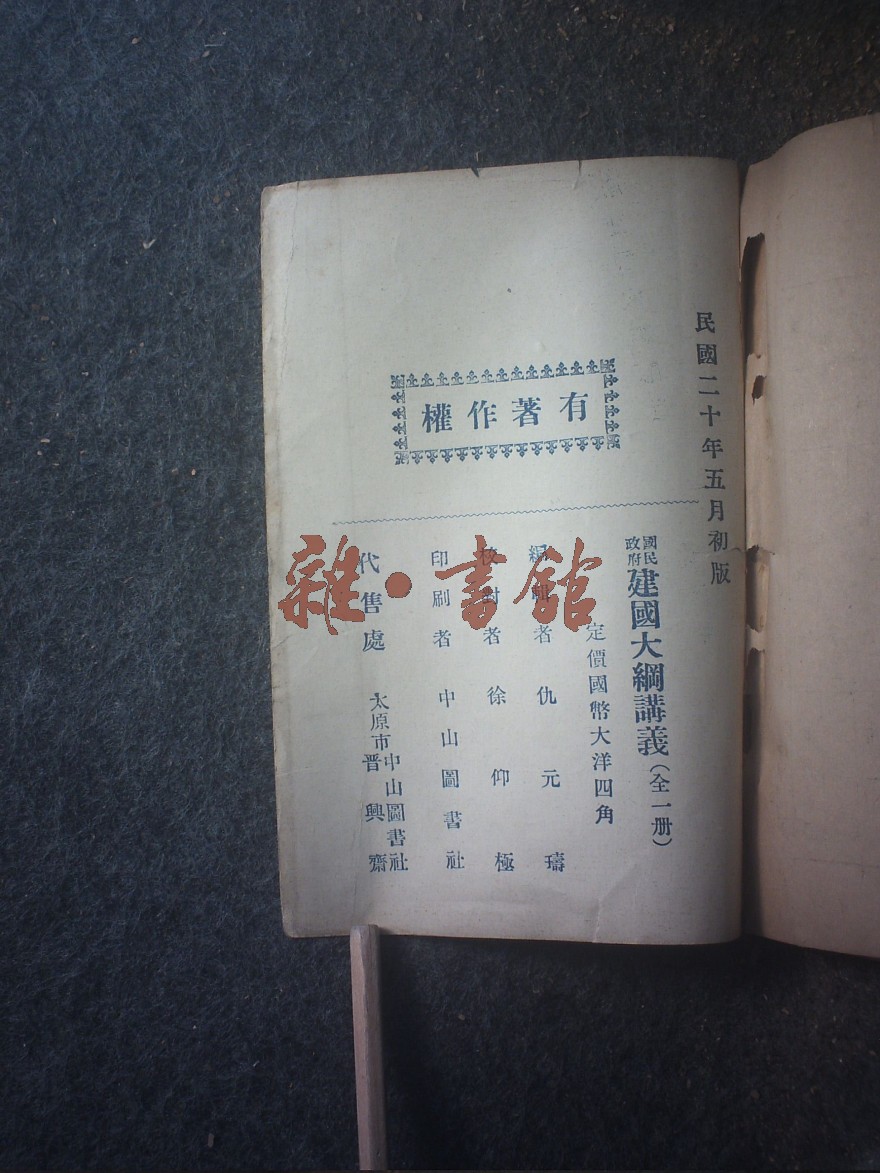 民國二十年五月初版
有著作權
國民政府建國大綱講義(全一册)
定價國幣大洋四角
編輯者仇元璹
校對者徐仰極
印刷者中山圖書社
代售處太原市中山圖書社
晋興齋
雜·書館